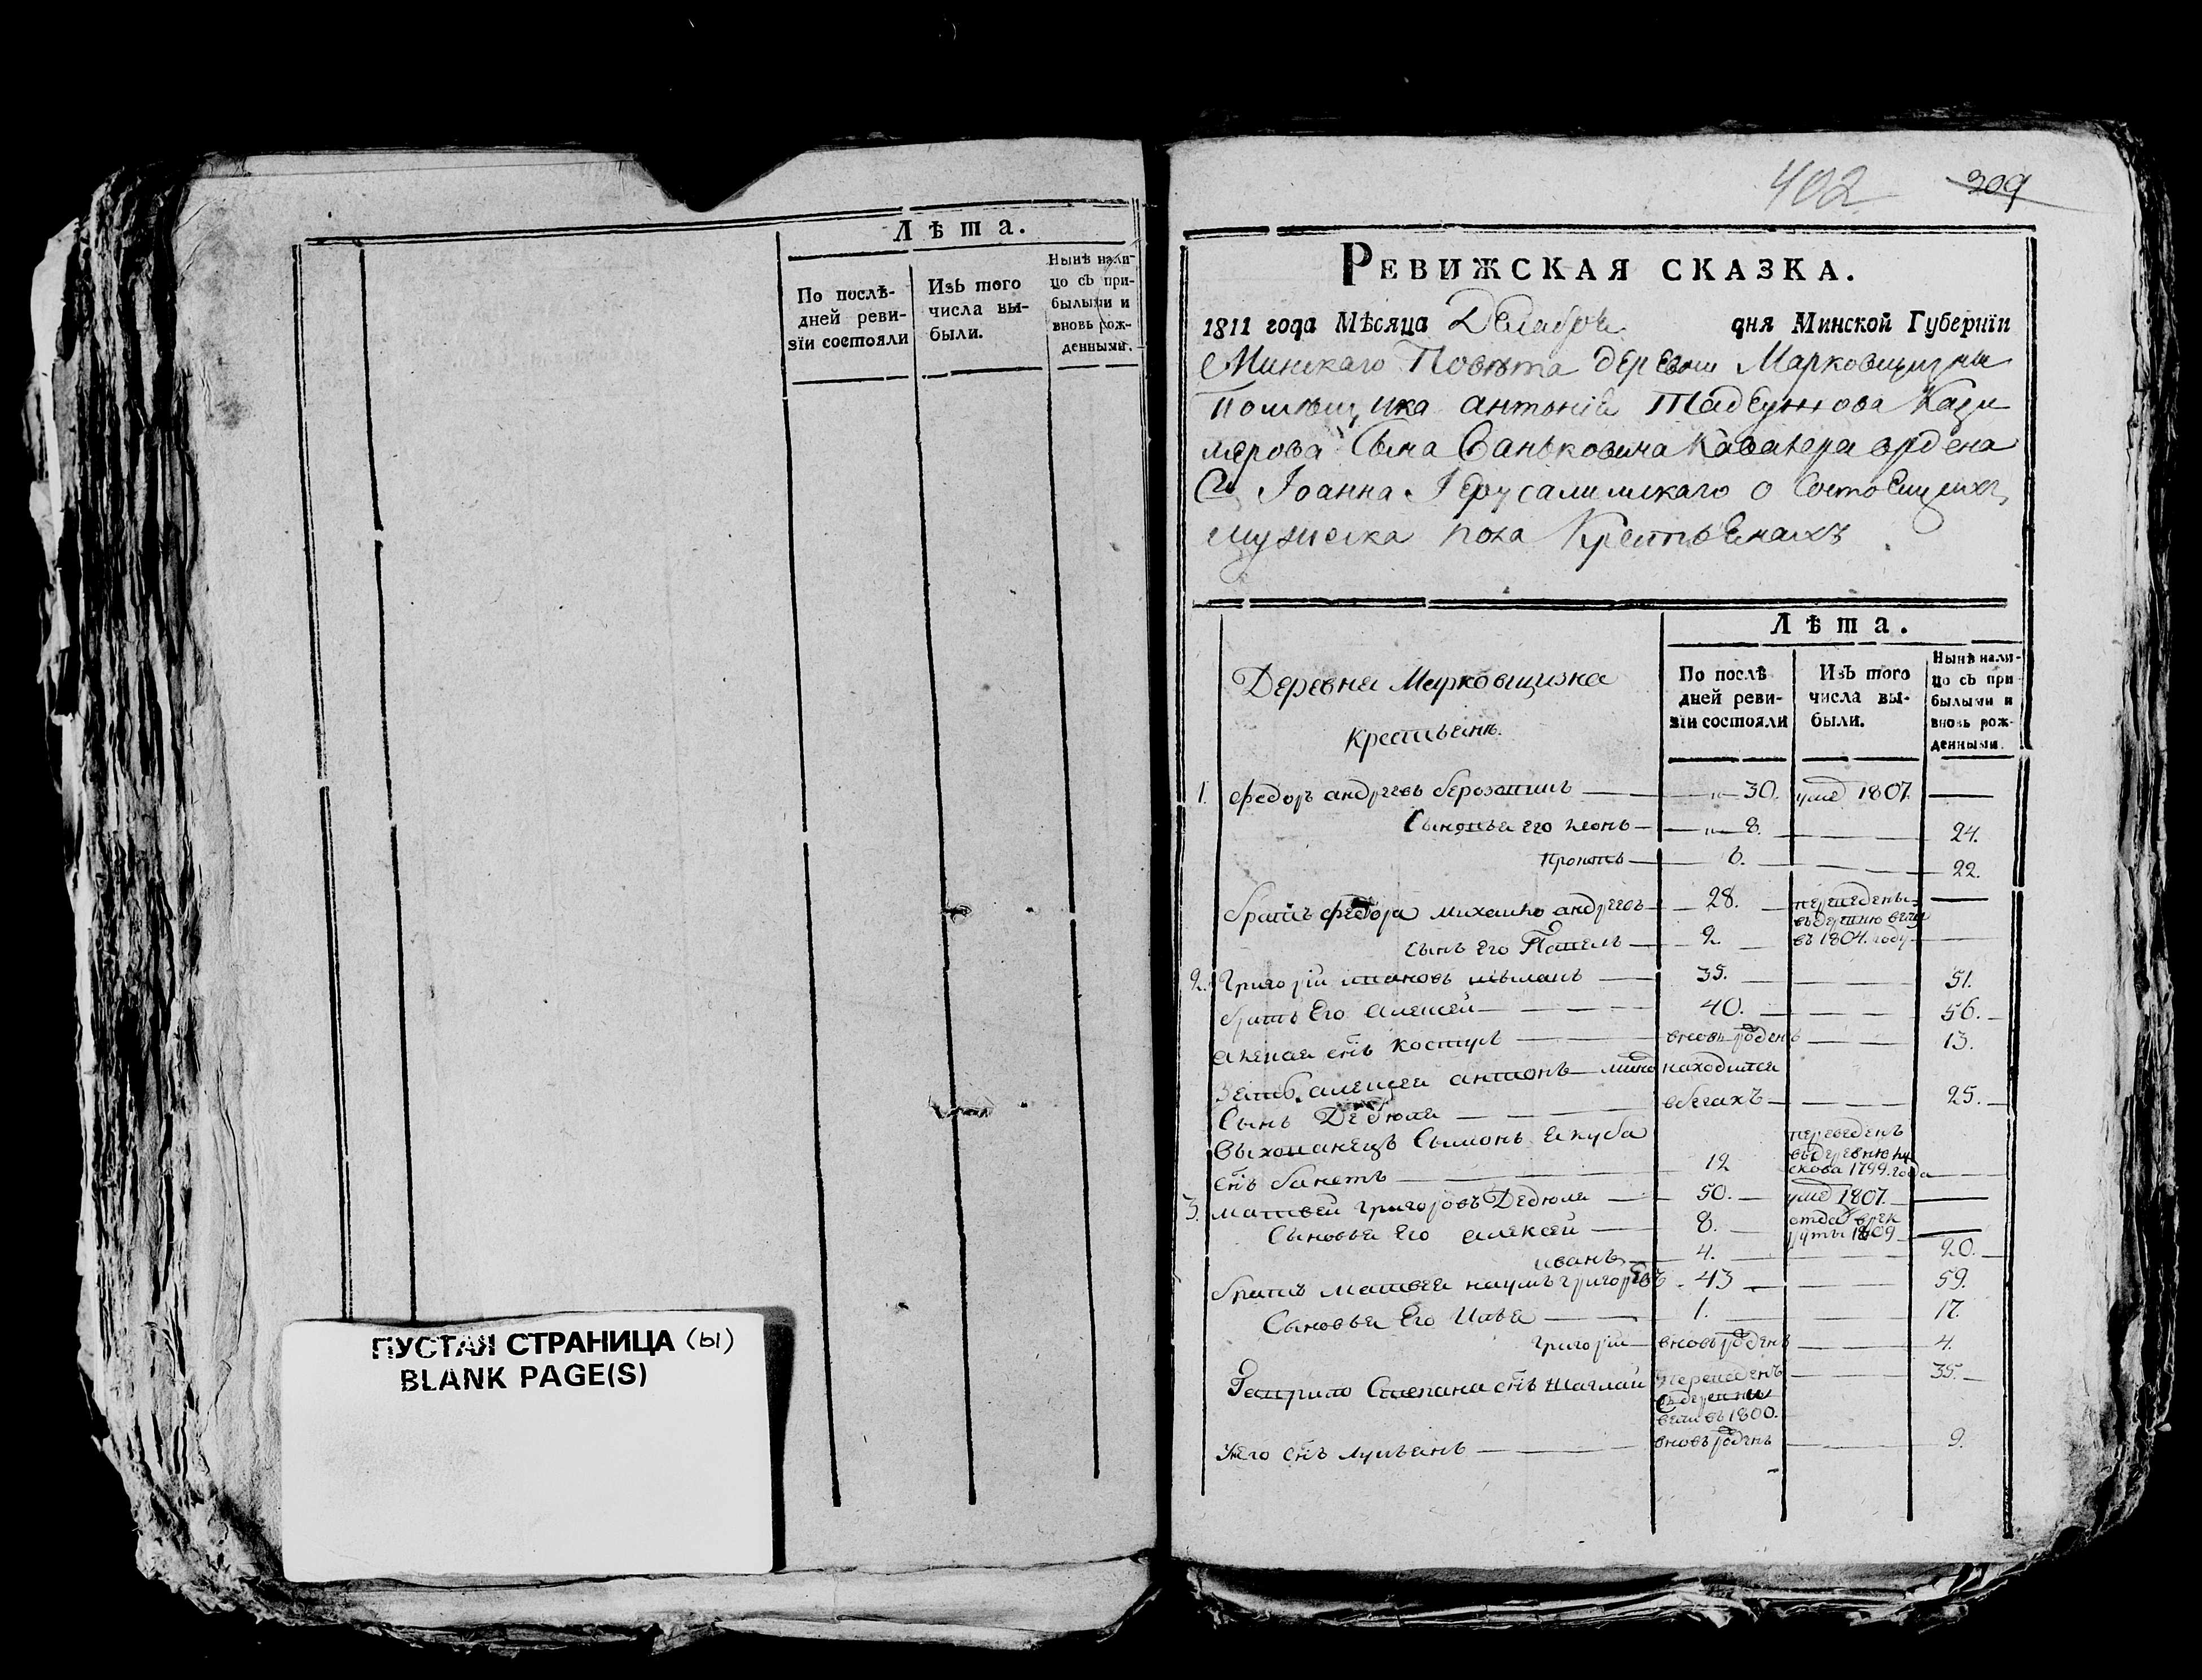 Лѣта.
По послѣ-
дней реви-
зіи состояли
Изъ того
числа вы-
были.
Нынѣ нали-
цо съ при-
былыми и
вновь рож-
денными.
ПУСТАЯ СТРАНИЦА (Ы)
BLANK PAGE(S)
402 309
РЕВИЖСКАЯ СКАЗКА.
1811 года Мѣсяца Декабря дня Минской Губерніи
Минскаго Повѣта деревни Марковщизны
Помѣщика антонія Тадеушова Кази
мерова Сына Ваньковича Кавалера ордена
Св Іоанна Іерусалимскаго о Состоещихъ
мужеска пола Крестьенахъ
Лѣта.
Деревня Марковщизна
Крестьенъ.
По послѣ
дней реви-
зіи состояли
Изъ того
числа вы-
были.
Нынѣ нали-
цо съ при
былыми и
вновь рож-
денными.
1. федоръ андреевъ 30. умер 1807.
Сыновья его леонъ 8. 24.
6. 22.
братъ федора михайло андреевъ 28. переведены
въ 1804. году
сынъ его Павелъ 2.
2. Григорій 35. 51.
братъ Его алексей 40. 56.
алексея снъ вновь рожденъ 13.
алексея антонъ находится
Сынъ Дедюля в бегахъ 25.
Сымонъ екуба переведенъ
въ деревню
снъ 12 1799. года
3. матвей григоровъ Дедюля 50. умер 1807.
Сыновья Его алексей 8. отдан врек
руты 1809
иванъ 4. 20.
братъ матвея наумъ григоревъ 43 59.
Сыновья Его Илья 1. 17.
григорій вновь рожденъ 4.
Гаврило Степана снъ переведенъ 35.
въ 1800.
Его снъ вновь рожденъ 9.